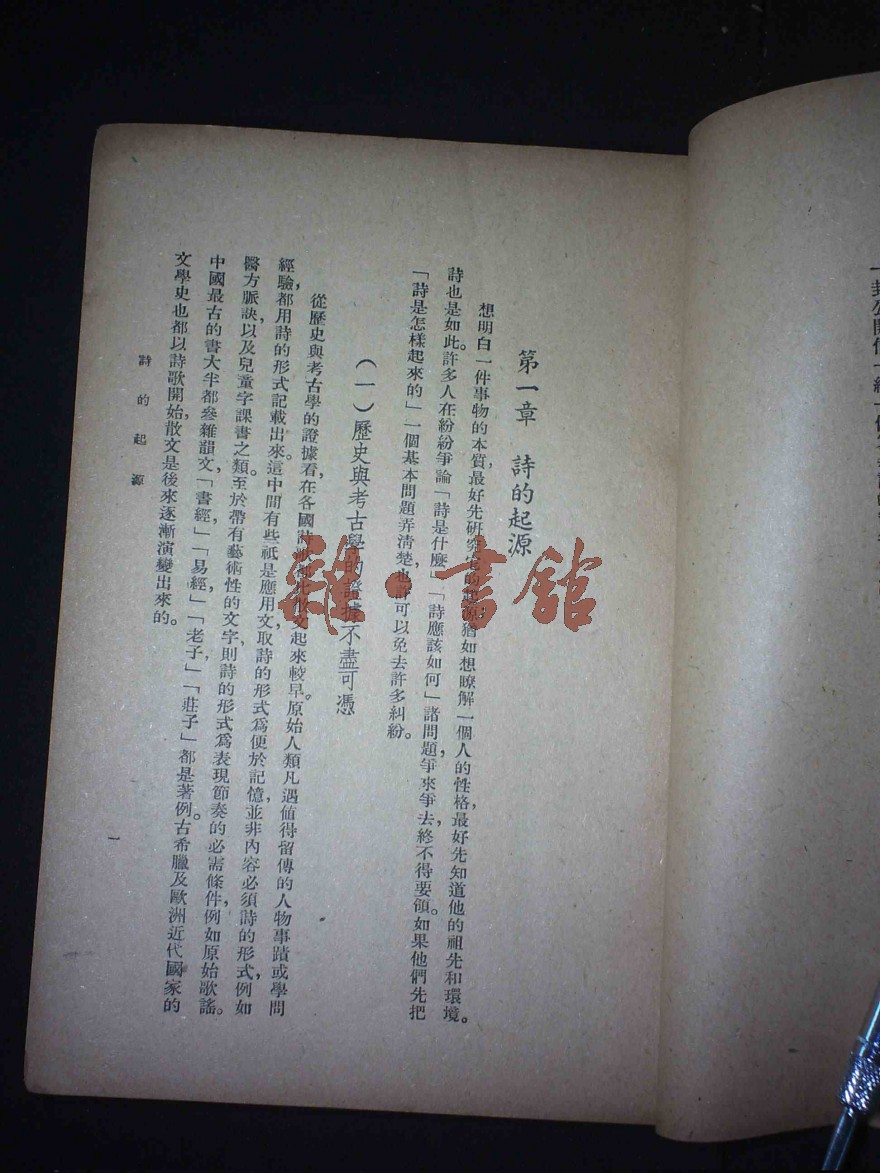 第一章 詩的起源
想明白一件事物的本質,最好先研究它的起源;猶如想瞭解一個人的性格,最好先知道他的祖先和環境。
詩也是如此。許多人在紛紛爭論「詩是什麼」「詩應該如何」諸問題,爭來爭去,終不得要領。如果他們先把
「詩是怎樣起來的」一個基本問題弄淸楚,也許可以免去許多糾紛。
(一)歷史與考古學的證據不盡可憑
從歷史與考古學的證據看,在各國詩歌都比散文起來較早。原始人類凡遇值得留傳的人物事蹟或學問
經驗,都用詩的形式記載出來。這中間有些祇是應用文,取詩的形式爲便於記憶,並非內容必須詩的形式,例如
醫方脈訣,以及兒童字課書之類。至於帶有藝術性的文字,則詩的形式爲表現節奏的必需條件,例如原始歌謠。
中國最古的書大半都參雜韻文,「書經」「易經」「老子」「莊子」都是著例。古希臘及歐洲近代國家的
文學史也都以詩歌開始,散文是後來逐漸演變出來的。
詩的起源
一
雜·書館